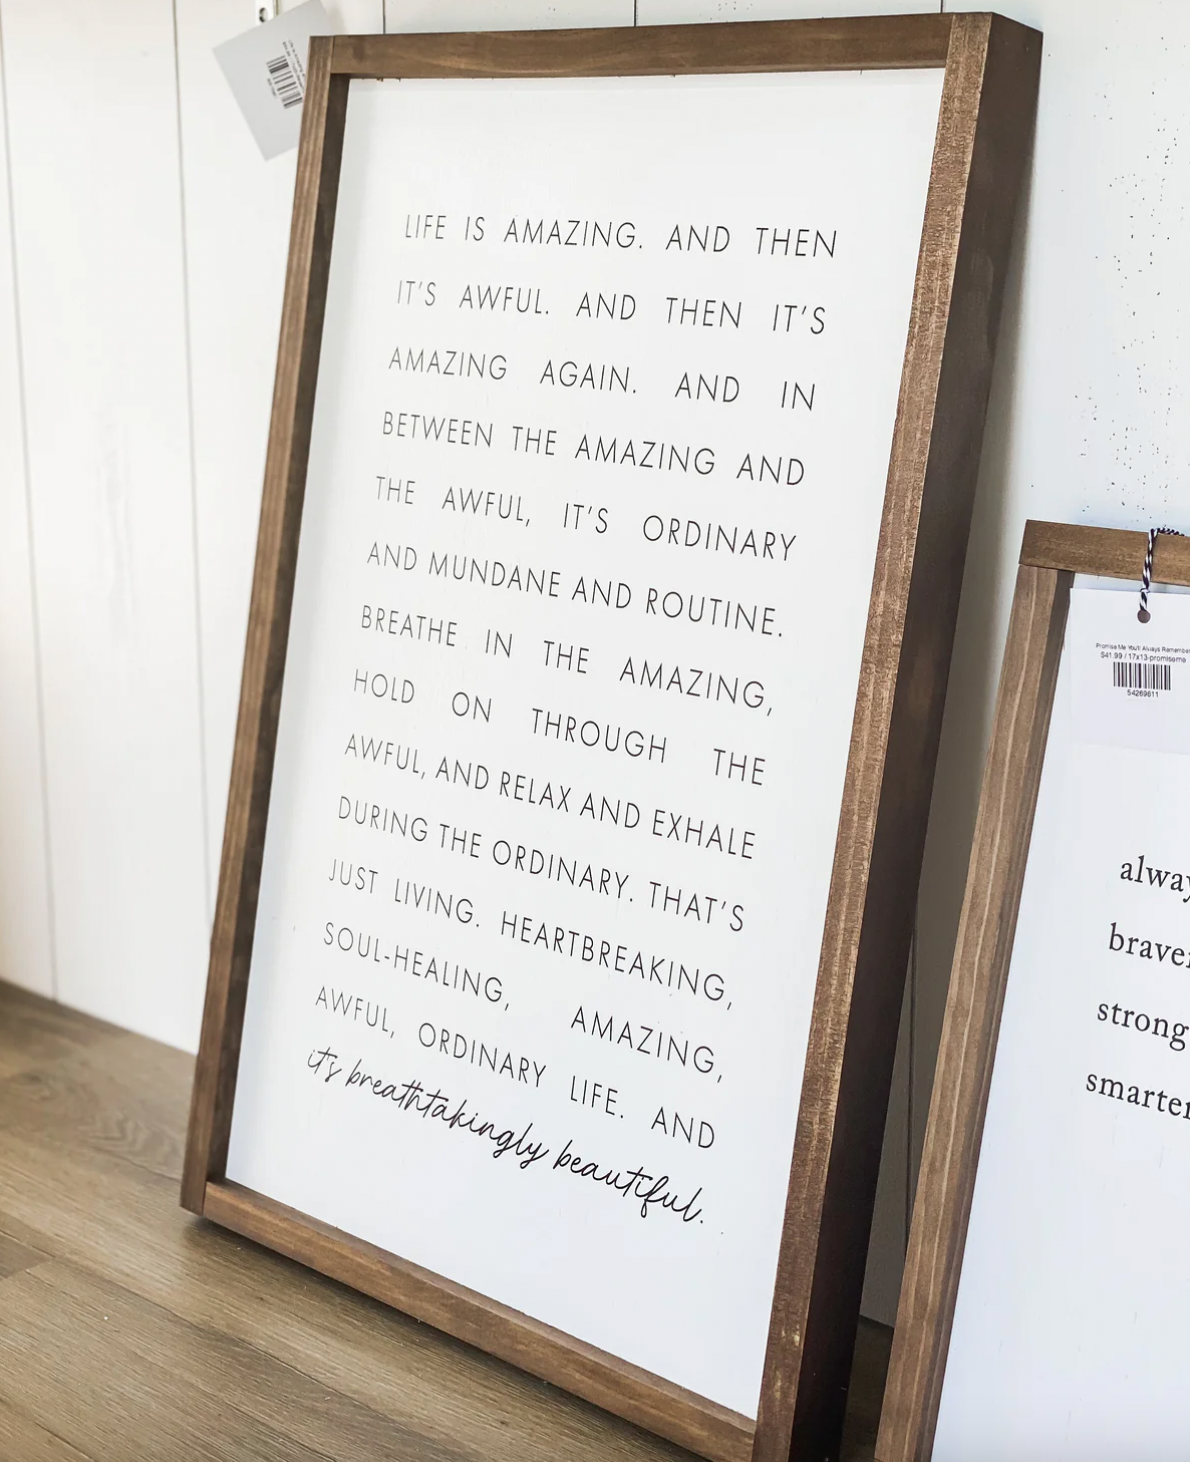 LIFE IS AMAZING. AND THEN
IT'S AWFUL. AND THEN IT'S
AMAZING AGAIN. AND IN
BETWEEN THE AMAZING AND
THE AWFUL, IT'S ORDINARY
AND MUNDANE AND ROUTINE.
BREATHE IN THE AMAZING,
HOLD ON THROUGH THE
AWFUL, AND RELAX AND EXHALE
DURING THE ORDINARY. THAT'S
JUST LIVING. HEARTBREAKING,
SOUL-HEALING, AMAZING,
AWFUL, ORDINARY LIFE. AND
it's breathtakingly beautiful.
Promise Me You'll Always Remember
$41.99 / 17x13-promiseme
54269611
alway
braver
strong
smarter